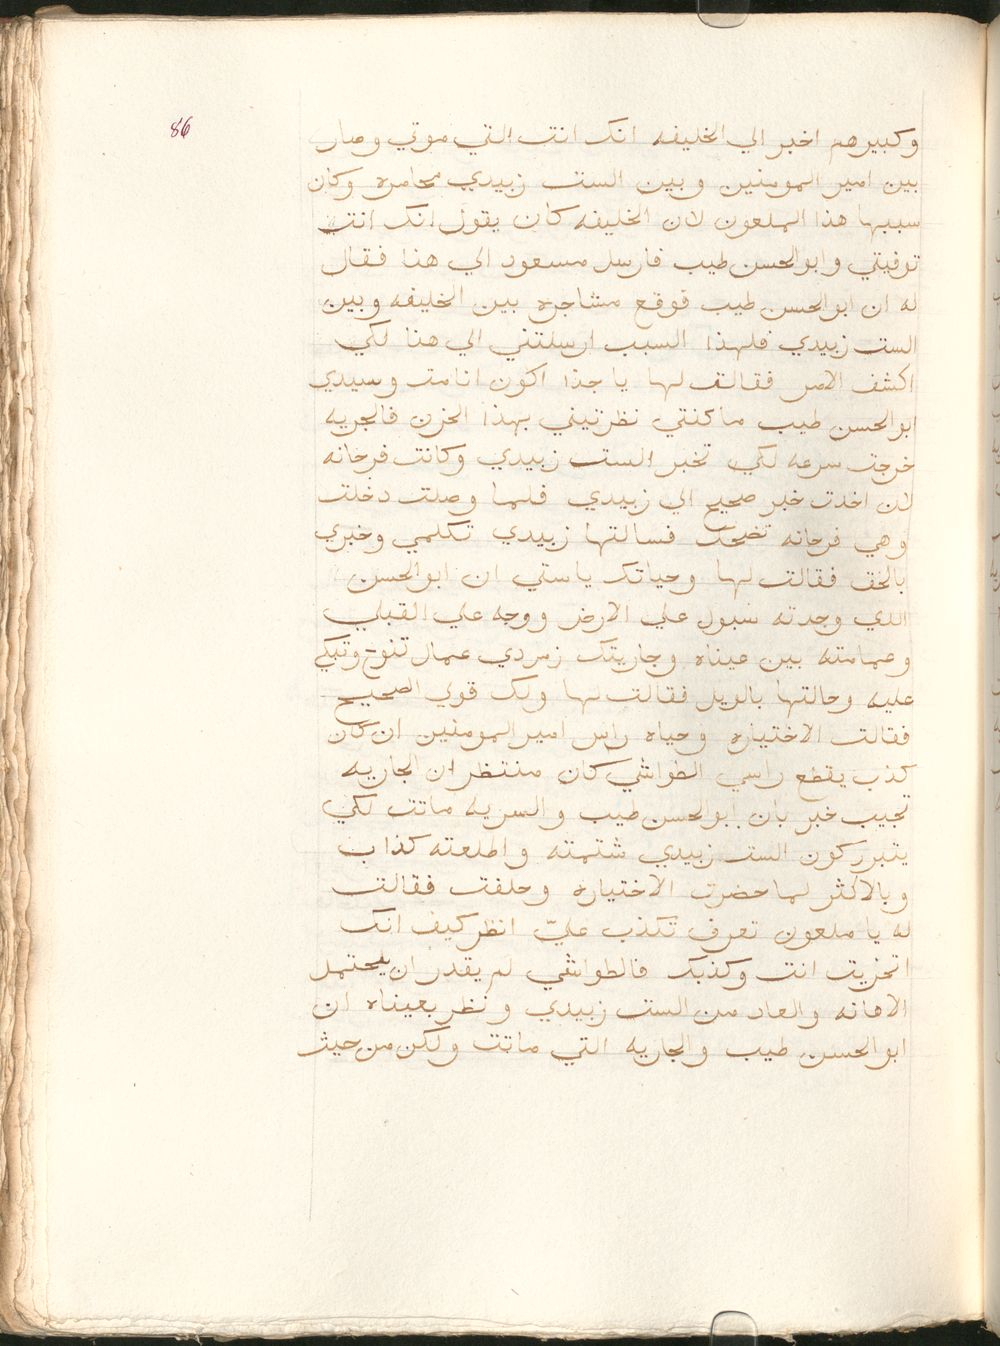 86
وكبيرهم اخبر الي الخليفه انك انت التي موتي وصار
بين امير المومنين وبين الست زبيدي مخامره وكان
سببها هذا الملعون لان الخليفه كان يقول انك انتي
توفيتي وابوالحسن طيب فارسل مسعود الي هنا فقال
له ان ابوالحسن طيب فوقع مشاجره بين الخليفه وبين
الست زبيدي فلهذا السبب ارسلتني الي هنا لكي
اكشف الامر فقالت لها يا جذا اكون انا مت وسيدي
ابوالحسن طيب ما كنتي نظرتيني بهذا الحزن فالجريه
خرجت سرعه لكي تخبر الست زبيدي وكانت فرحانه
لان اخدت خبر صحيح الي زبيدي فلما وصلت دخلت
وهي فرحانه تضحك فسالتها زبيدي تكلمي وخبري
بالحق فقالت لها وحياتك ياستي ان ابوالحسن
الدي وجدته سبول علي الارض ووجه علي القبلي
وعمامته بين عيناه وجاريتك زمردي عمال تنوح وتبكي
عليه وحالتها بالويل فقالت لها ولك قولي الصحيح
فقالت الاختياره وحياه راس امير المومنين ان كان
كذب يقطع راسي الطواشي كان منتظر ان الجاريه
تجيب خبر بان ابوالحسن طيب والسريه ماتت لكي
يتبرر كون الست زبيدي شتمته واطلعته كذاب
وبالاكثر لما حضرت الاختياره وحلفت فقالت
له يا ملعون تعرف تكذب عليّ انظر كيف انك
اتخزيت انت وكذبك فالطواشي لم يقدر ان يحتمل
الاهانه والعار من الست زبيدي ونظر بعيناه ان
ابوالحسن طيب والجاريه التي ماتت ولكن من حيث